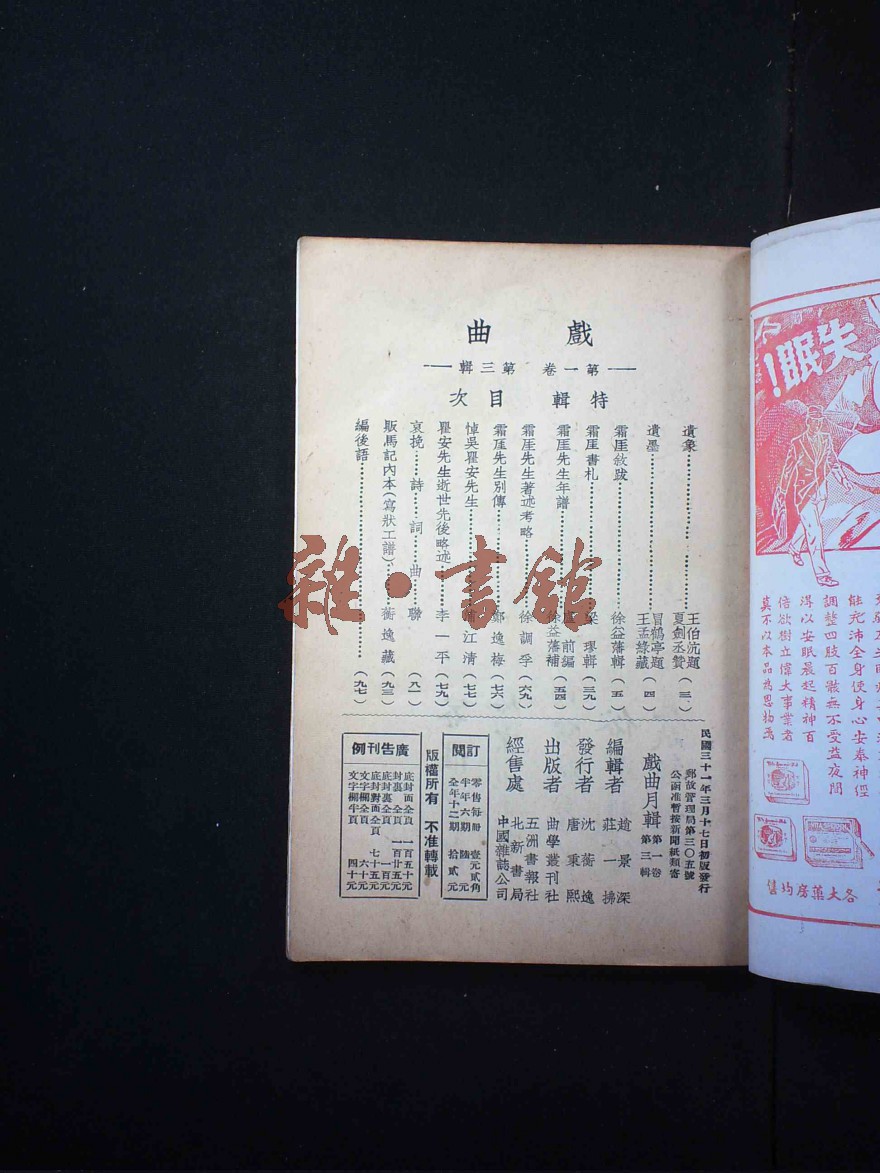 戲曲
第一卷 第三輯
特輯 目次
遺象……王伯沆題 夏劍丞贊(三)
遺墨……冒鶴亭題 王孟綠藏(四)
霜厓敘跋……徐益藩輯(五)
霜厓書札……梁璆輯(三九)
霜厓先生年譜……盧前編 徐益藩補(五四)
霜厓先生著述考略……徐調孚(六九)
霜厓先生別傳……鄭逸梅(七六)
悼吳瞿安先生……浦江清(七七)
瞿安先生逝世先後略述……李一平(七九)
哀挽……詩……詞……曲……聯(八一)
販馬記內本(寫狀工譜)……蘅逸藏(九三)
編後語……(九七)
民國三十一年三月十七日初版發行
郵政管理局第三〇五號
公函准暫按新聞紙類寄
戲曲月輯 第一卷 第三輯
編輯者 趙景深 莊一拂
發行者 沈蘅逸 唐秉熙
出版者 曲學叢刊社
經售處 五洲書報社 北新書局 中國雜誌公司
訂閱
零售每冊 壹元貳角
半年六期 陸元
全年十二期 拾貳元
版權所有 不准轉載
廣告刊例
底封面全頁 一百五十元
封裏全頁 一百廿五元
底封裏全頁 一百元
底封對面全頁 七十五元
文字欄全頁 六十元
文字欄半頁 四十元
雜·書館
失眠!
能充沛全身使身心安奉神經
調整四肢百骸無不受益夜間
得以安眠晨起精神百
倍欲樹立偉大事業者
莫不以本品為恩物焉
各大藥房均售